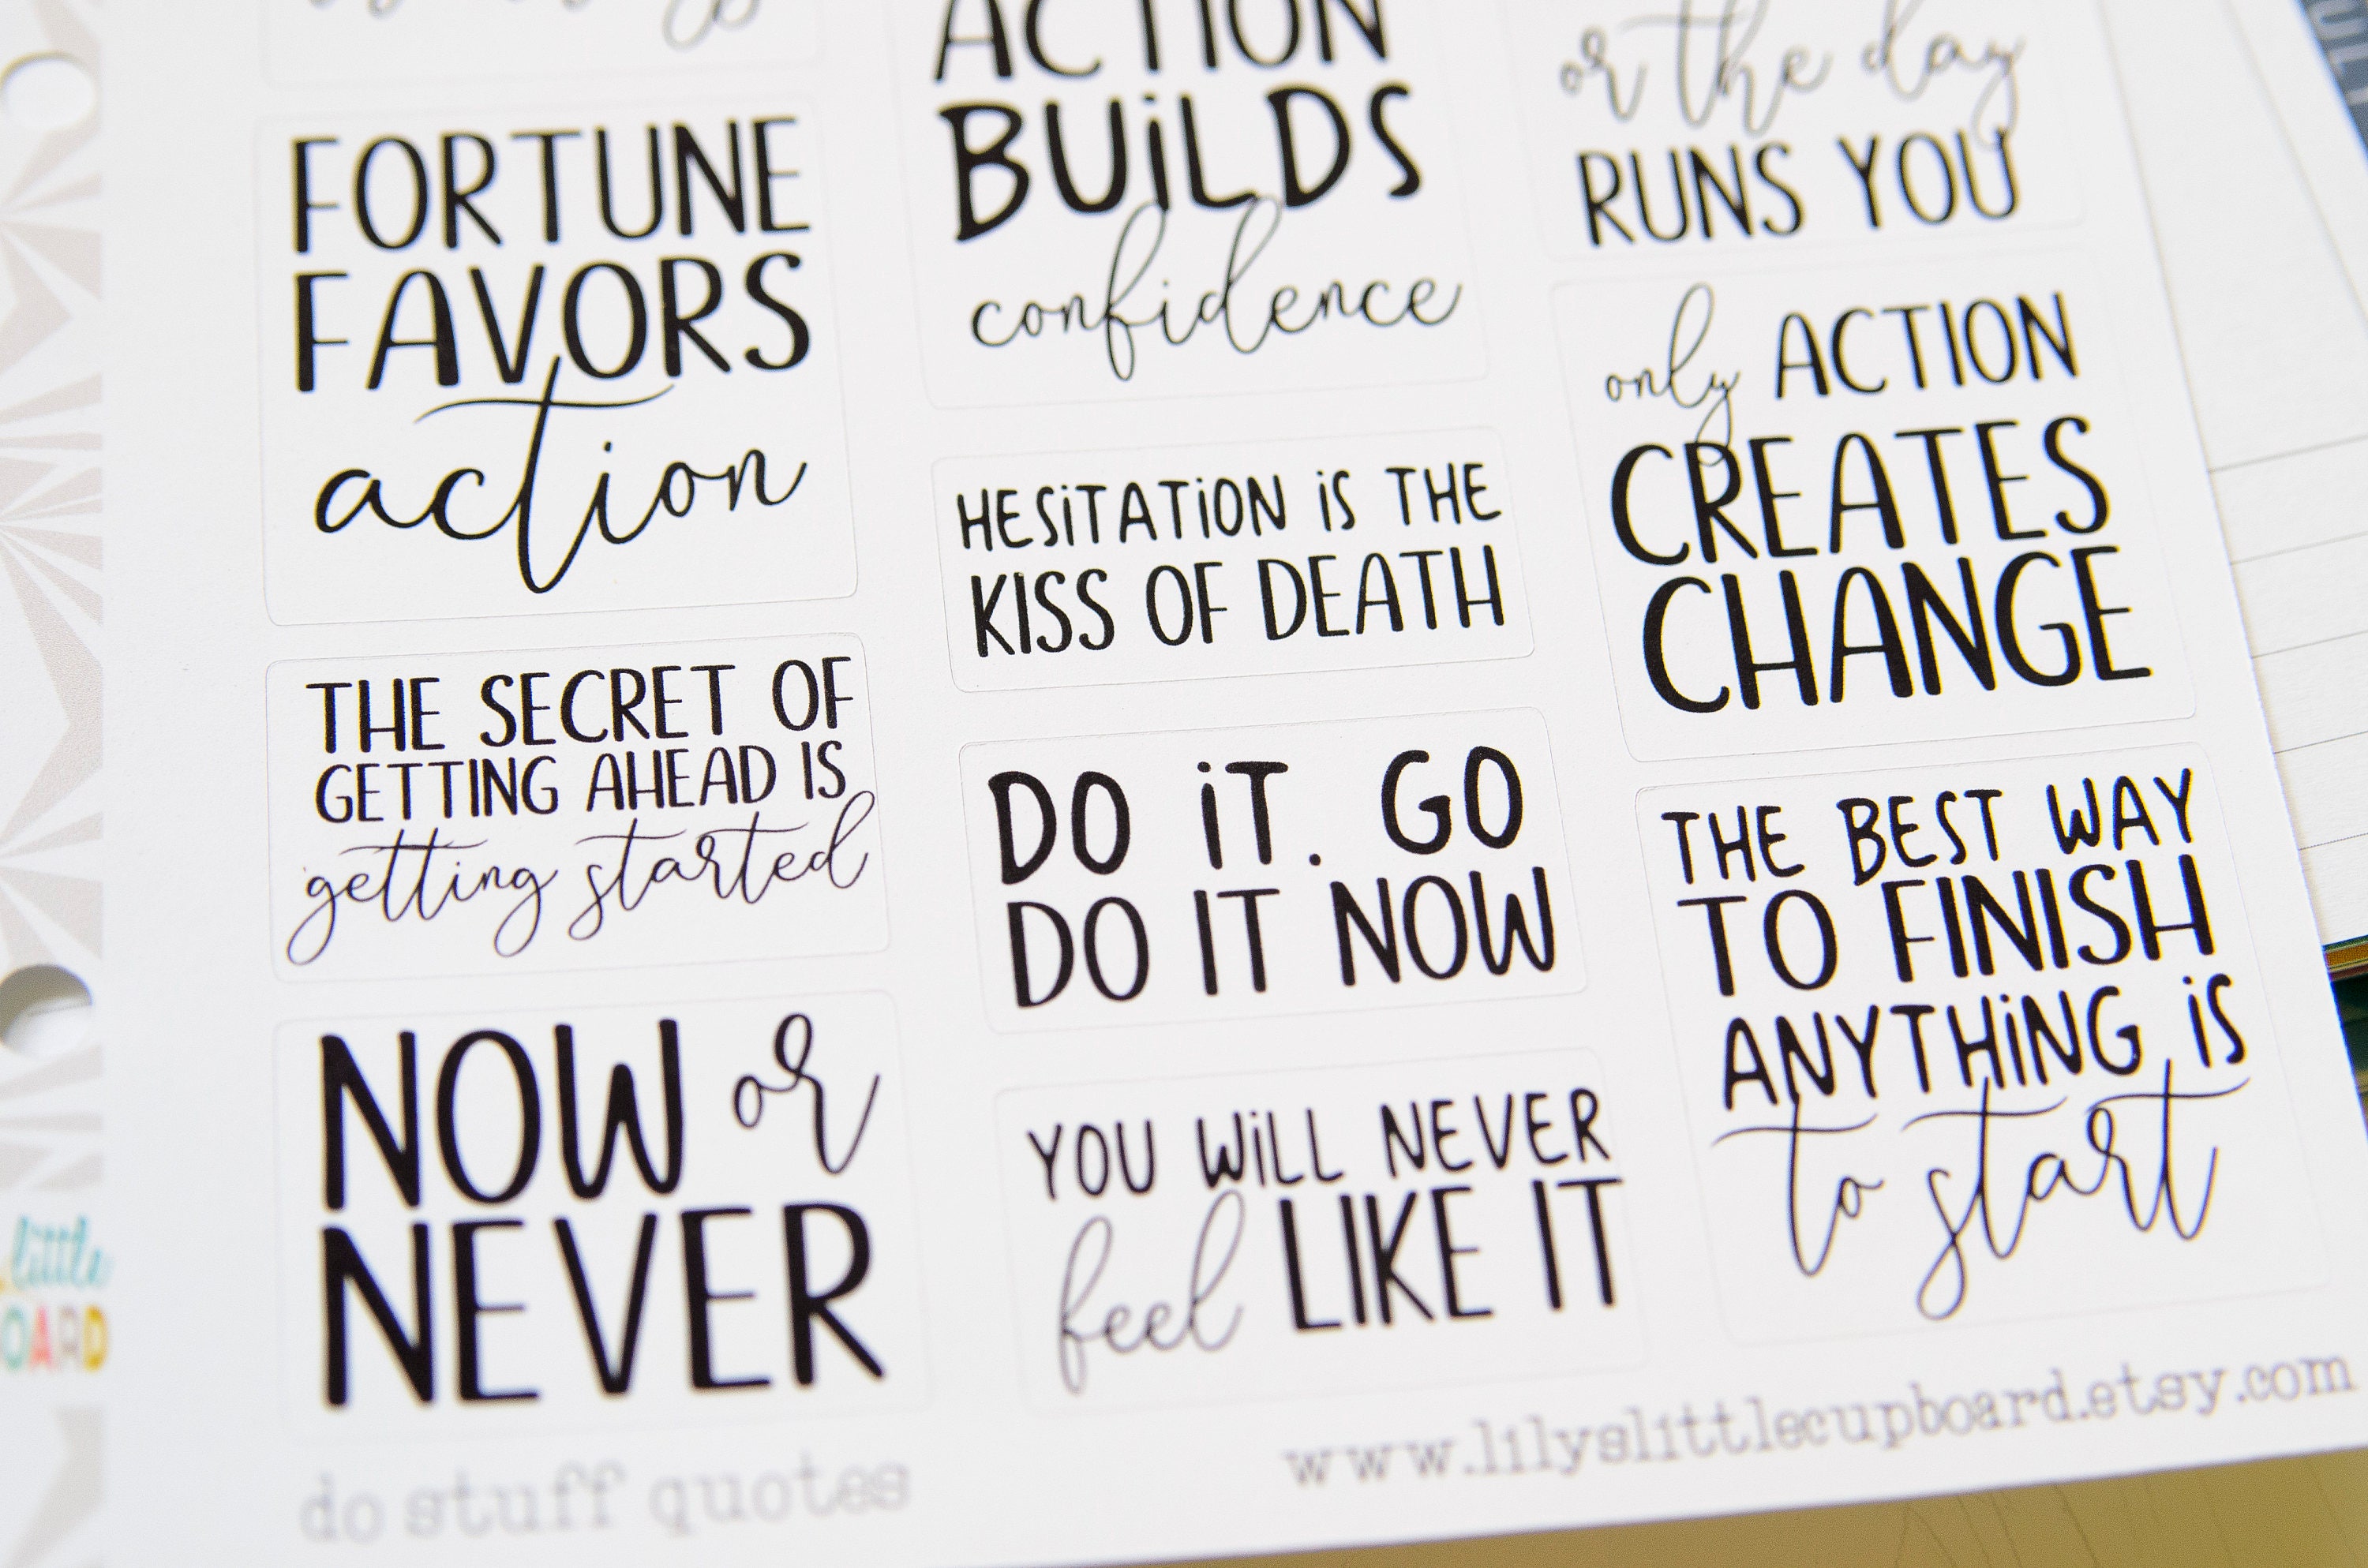 FORTUNE
FAVORS
action
THE SECRET OF
GETTING AHEAD IS
getting started
NOW or
NEVER
ACTION
BUiLDS
confidence
HESiTATiON iS THE
KISS OF DEATH
DO iT. GO
DO IT NOW
YOU WiLL NEVER
feel LIKE IT
or the day
RUNS YOU
only ACTION
CREATES
CHANGE
THE BEST WAY
TO FINISH
ANYTHiNG iS
to start
little
do stuff quotes
www.lilyslittlecupboard.etsy.com